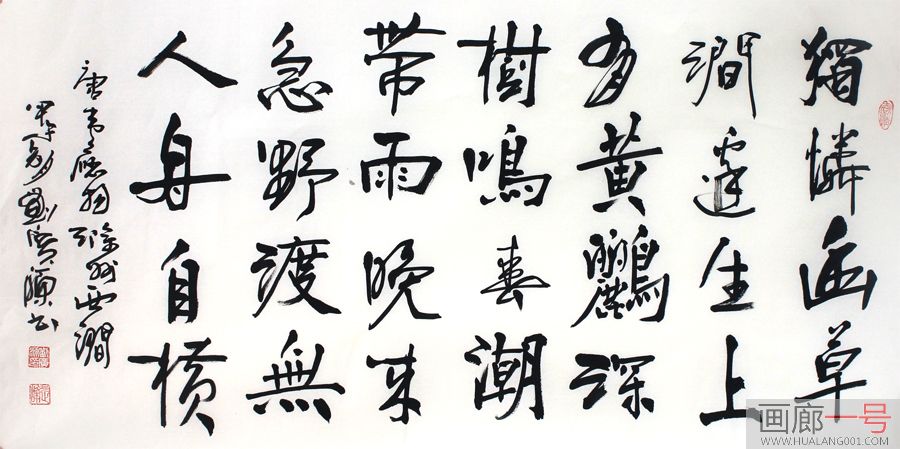 獨憐幽草
澗邊生上
有黄鸝深
樹鳴春潮
帶雨晚来
急野渡無
人舟自横
唐韋應物滁州西澗
甲午劉书
画廊一号
WWW.HUALANG001.COM